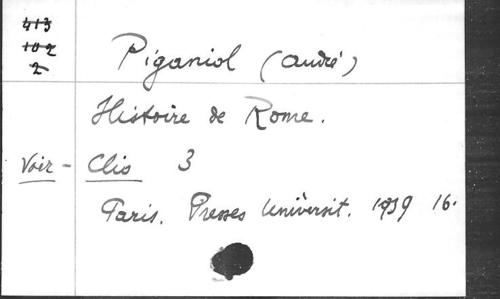 413
102
2
Piganiol (André)
Histoire de Rome.
Voir - Clio 3
Paris. Presses Universit. 1939 16.